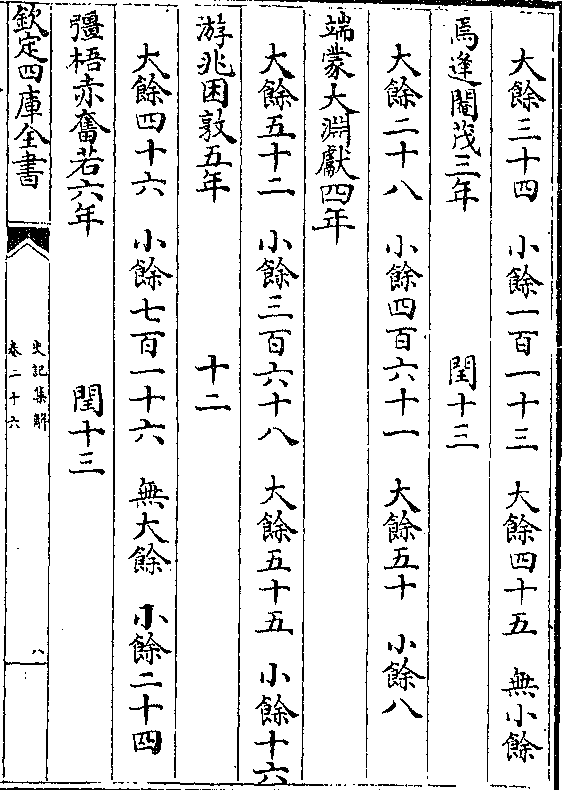 大餘三十四 小餘一百一十三 大餘四十五 無小餘
焉逢閹茂三年 閏十三
大餘二十八 小餘四百六十一 大餘五十 小餘八
端蒙大淵獻四年
大餘五十二 小餘三百六十八 大餘五十五 小餘十六
游兆困敦五年 十二
大餘四十六 小餘七百一十六 無大餘 小餘二十四
彊梧赤奮若六年 閏十三
欽定四庫全書
史記集解
卷二十六
八